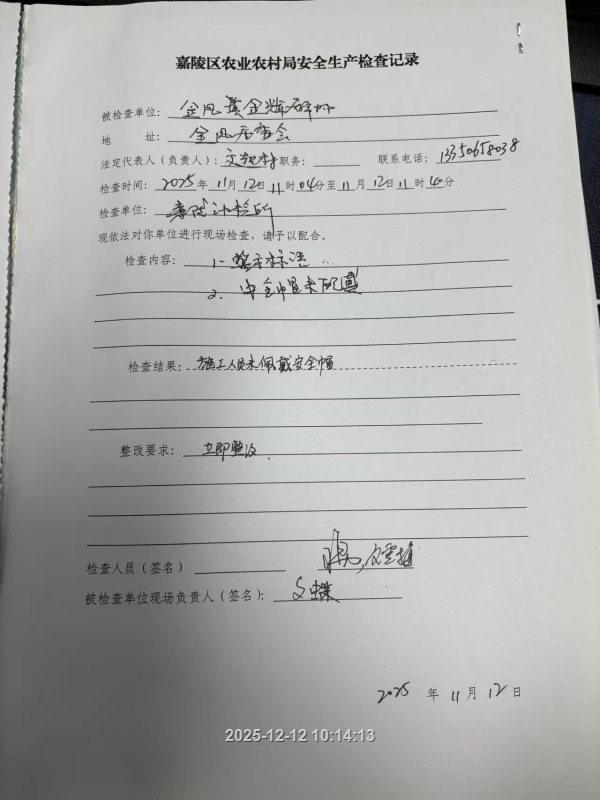 嘉陵区农业农村局安全生产检查记录
被检查单位: 金凤黄金
地 址: 金凤居委会
法定代表人(负责人): 职务: 联系电话: 13350658038
检查时间: 2025年11月12日11时04分至11月12日11时40分
检查单位: 嘉陵
现依法对你单位进行现场检查,请予以配合。
检查内容: 1. 警示标语
2. 安全帽未配置
检查结果: 施工人员未佩戴安全帽
整改要求: 立即整改.
检查人员(签名)
被检查单位现场负责人(签名):
2025 年 11 月 12 日
2025-12-12 10:14:13